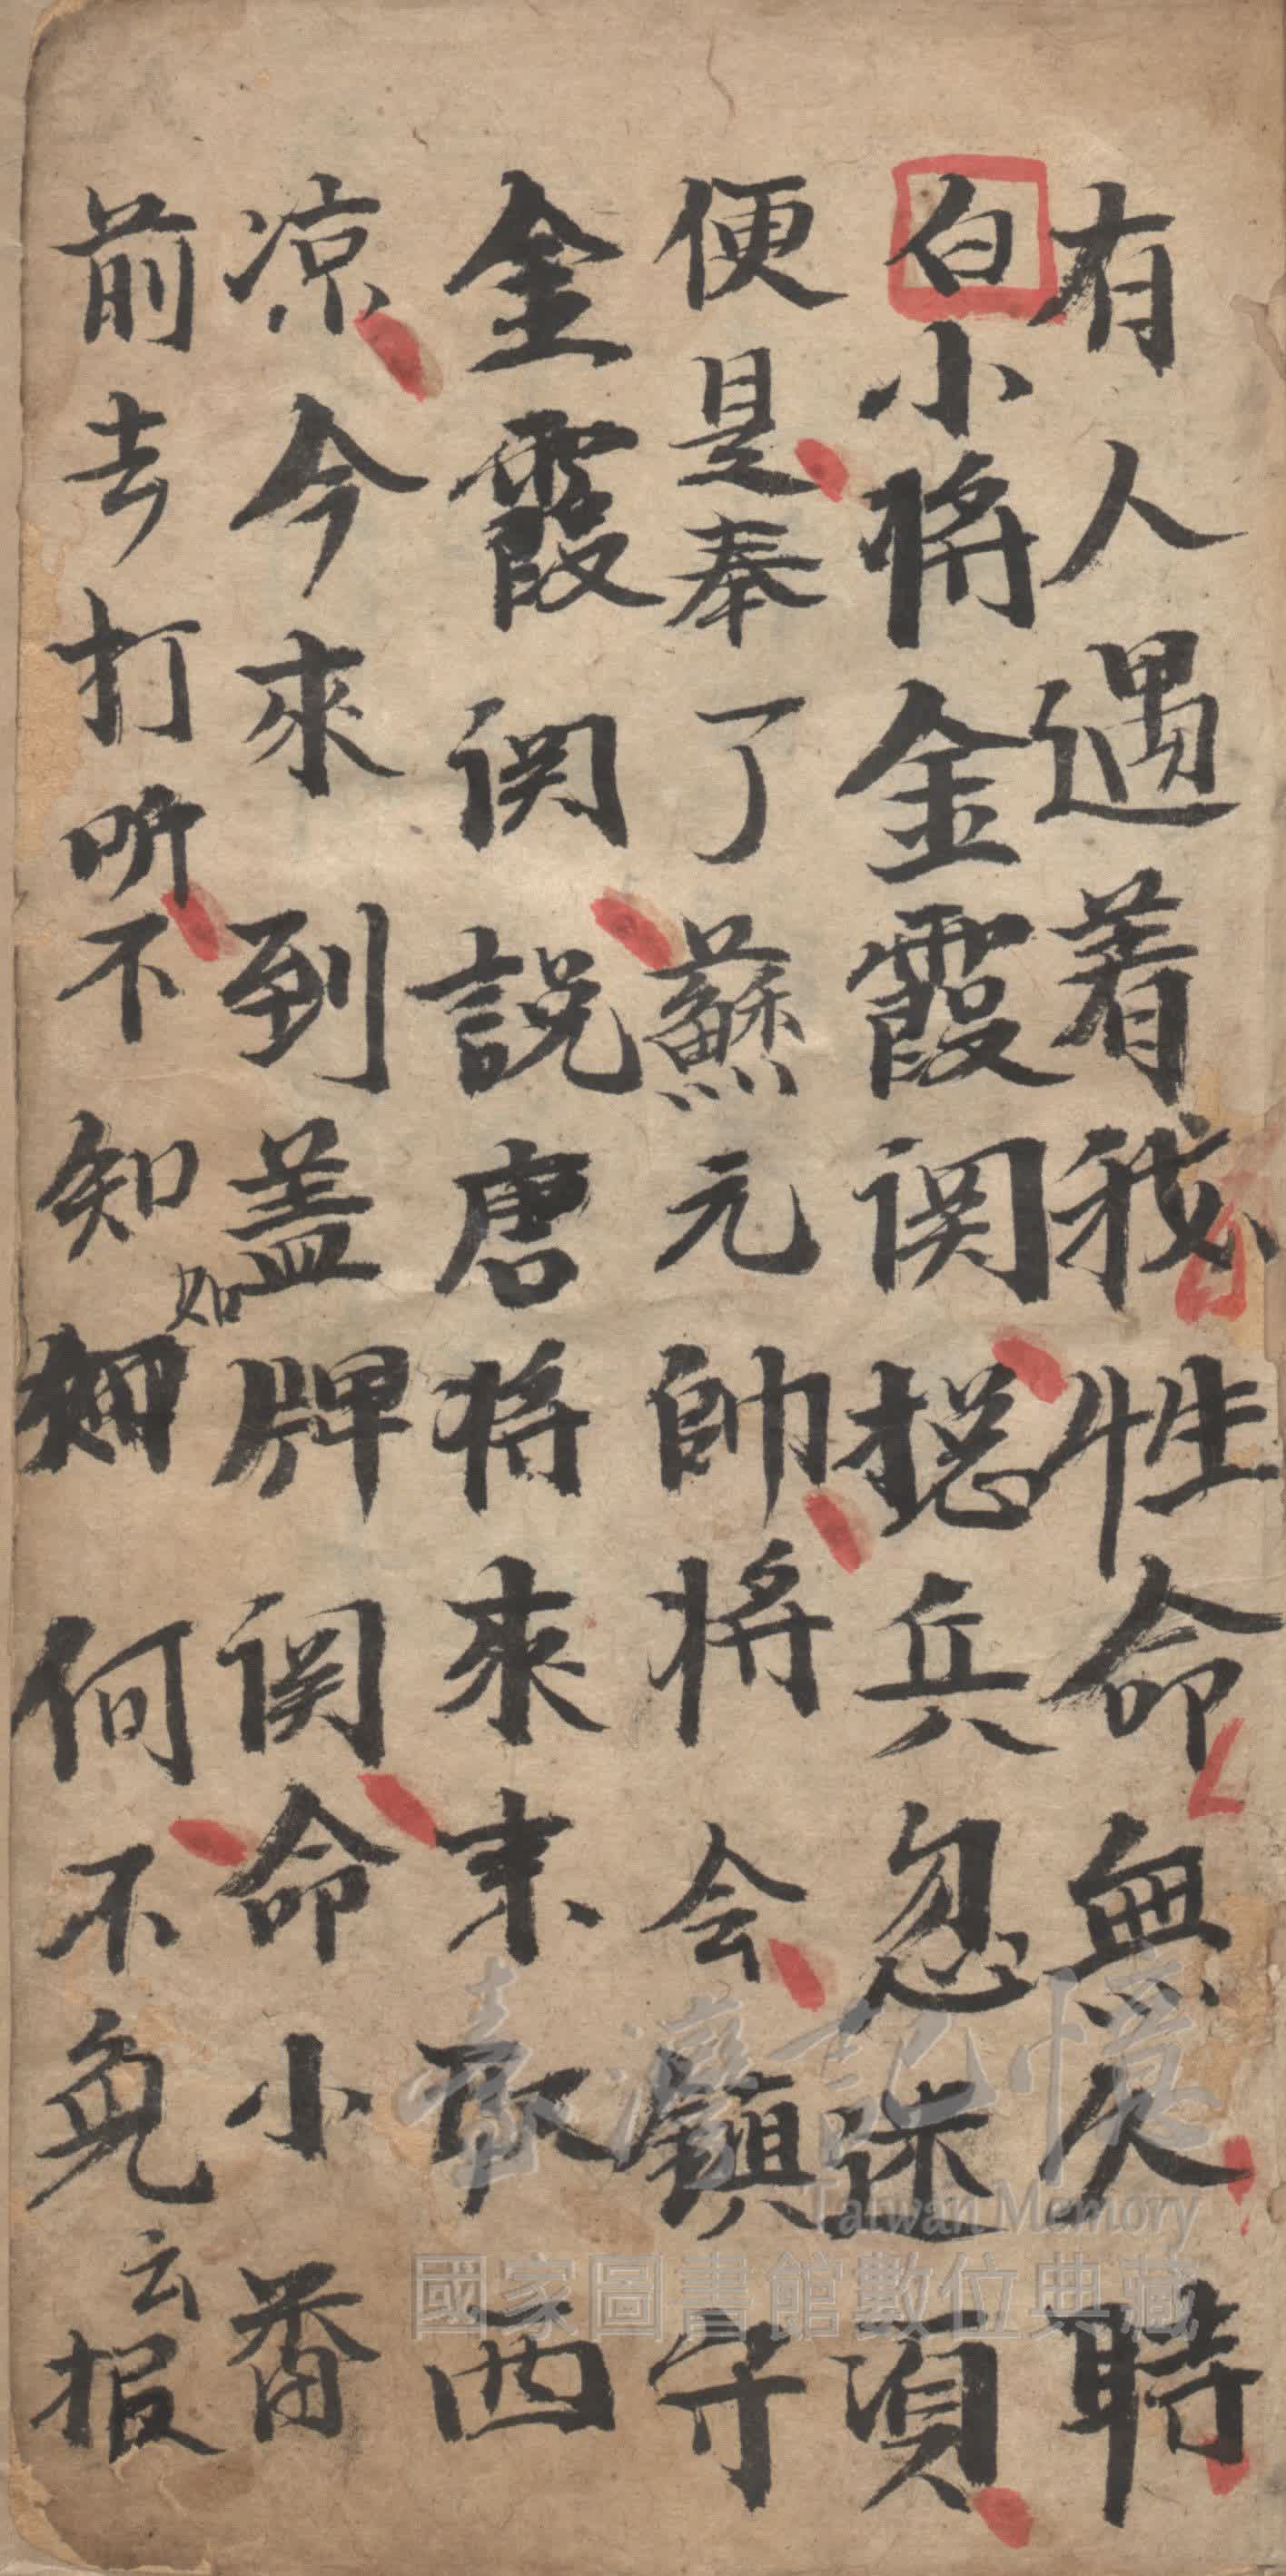 有人遇着我牲命無久時
白小將金霞関挩兵忽迷項
便是奉了蘇元帥將会鎮守
金霞関説唐将來末取西
凉今來到盖牌関命小番
前去打听不知如何不免云报
臺灣記憶
Taiwan Memory
國家圖書館數位典藏